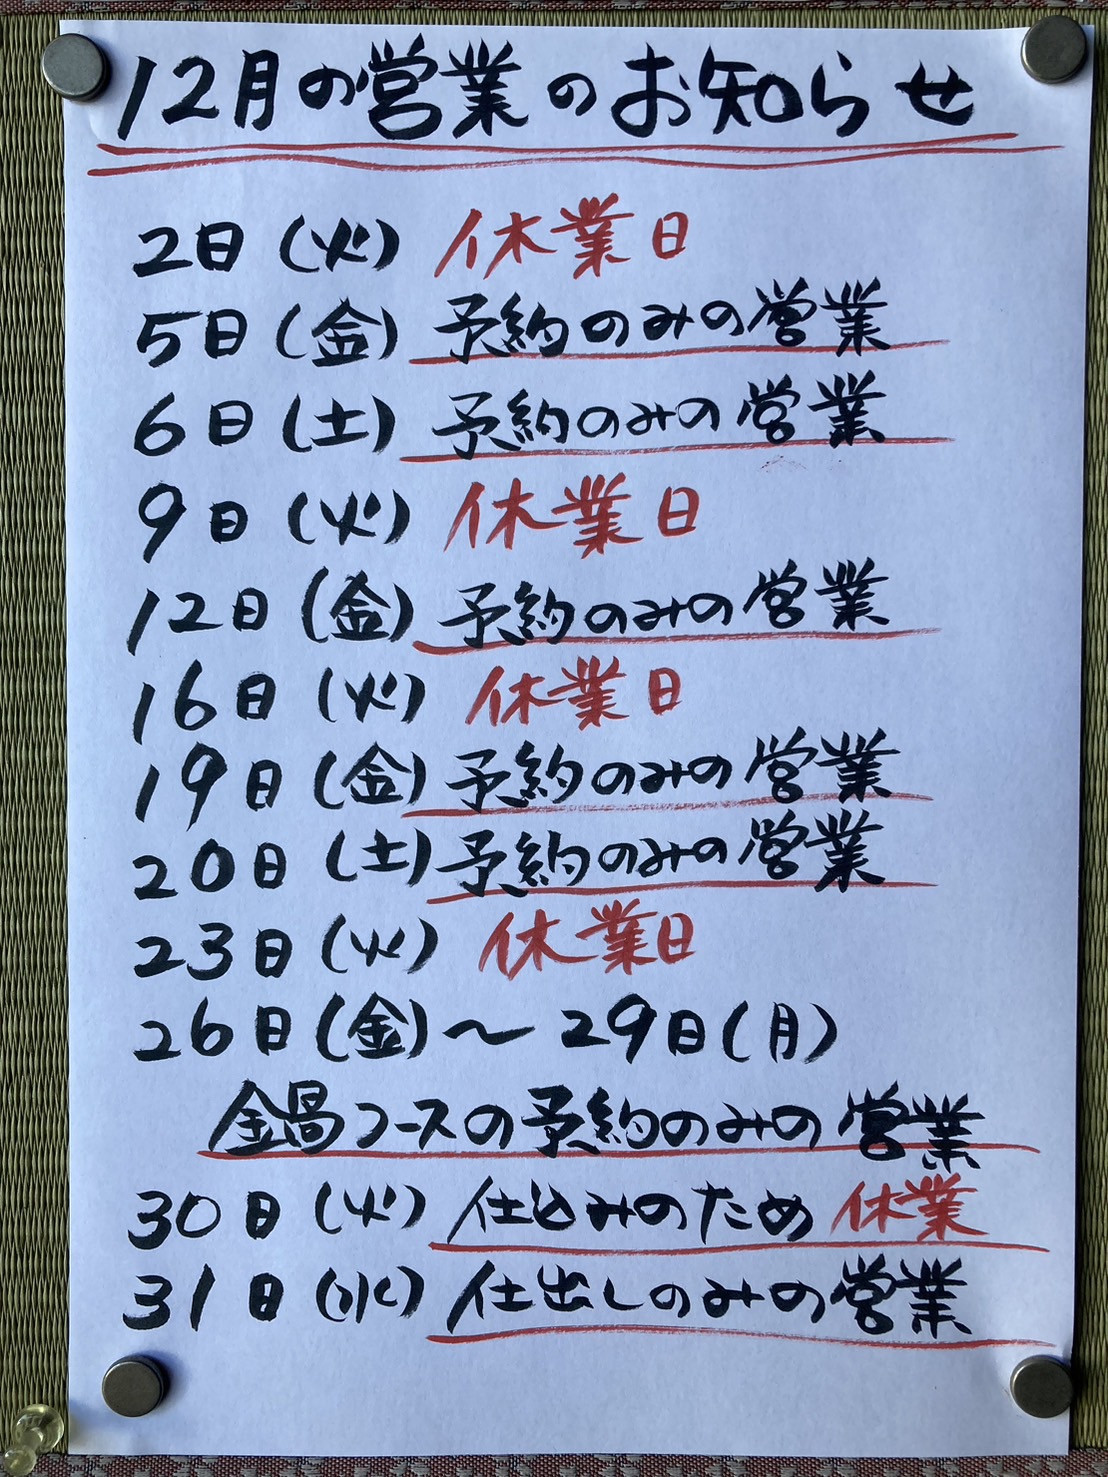 12月の営業のお知らせ
2日(火) 休業日
5日(金) 予約のみの営業
6日(土) 予約のみの営業
9日(火) 休業日
12日(金) 予約のみの営業
16日(火) 休業日
19日(金) 予約のみの営業
20日(土) 予約のみの営業
23日(火) 休業日
26日(金)〜29日(月)
鍋コースの予約のみの営業
30日(火) 仕込みのため休業
31日(水) 仕出しのみの営業